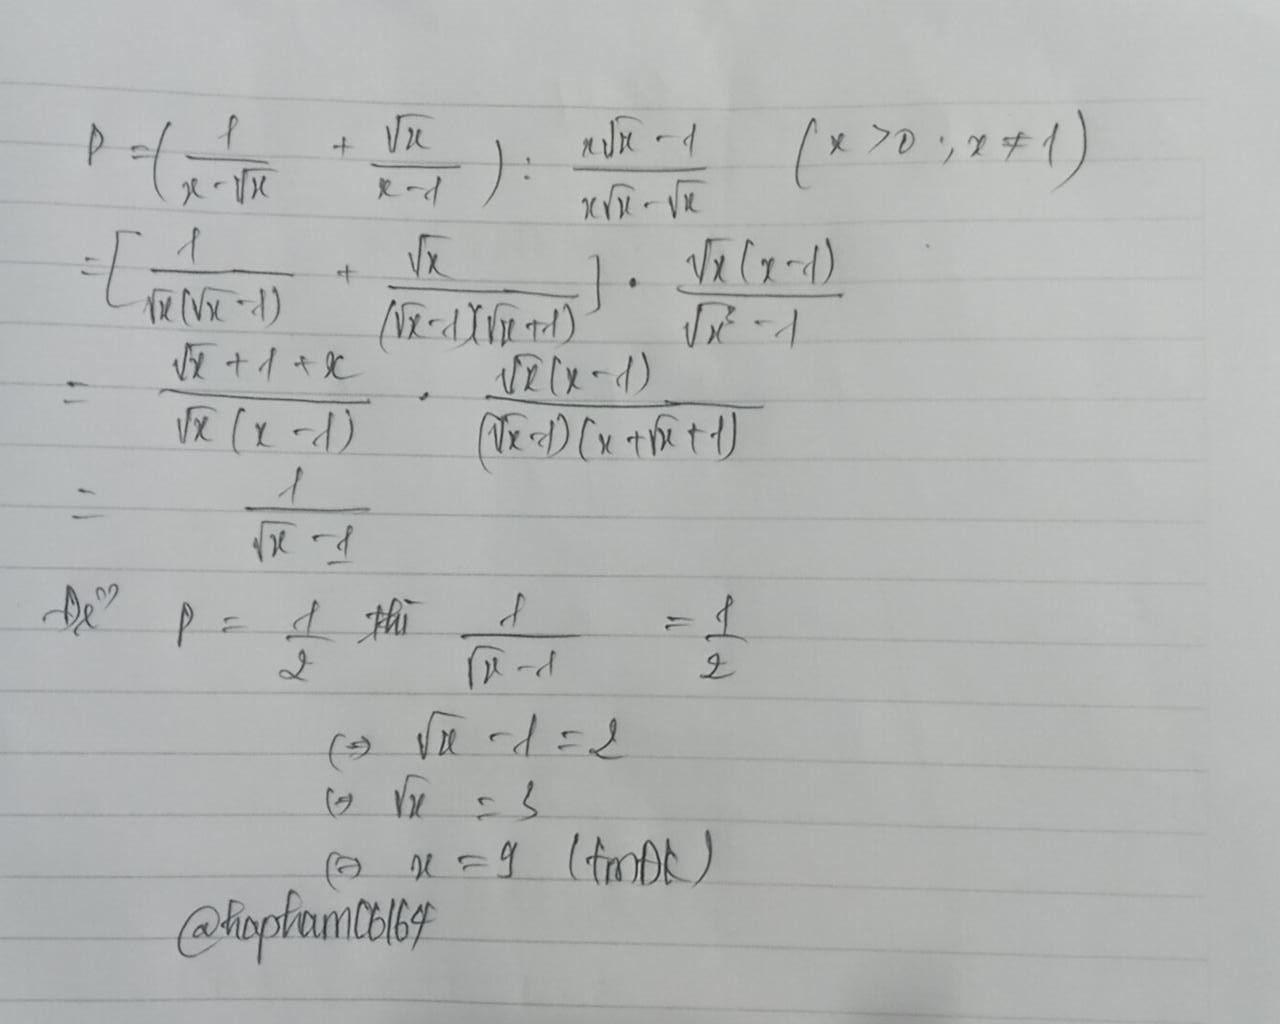 P = ( 1/(x - √x) + √x/(x - 1) ) : (x√x - 1)/(x√x - √x) (x > 0 ; x ≠ 1)
= [ 1/(√x(√x - 1)) + √x/((√x - 1)(√x + 1)) ] . √x(x - 1)/(√x³ - 1)
= (√x + 1 + x)/(√x(x - 1)) . √x(x - 1)/((√x - 1)(x + √x + 1))
= 1/(√x - 1)
Để P = 1/2 thì 1/(√x - 1) = 1/2
(=) √x - 1 = 2
(=) √x = 3
(=) x = 9 (tmĐK)
@hapham06164